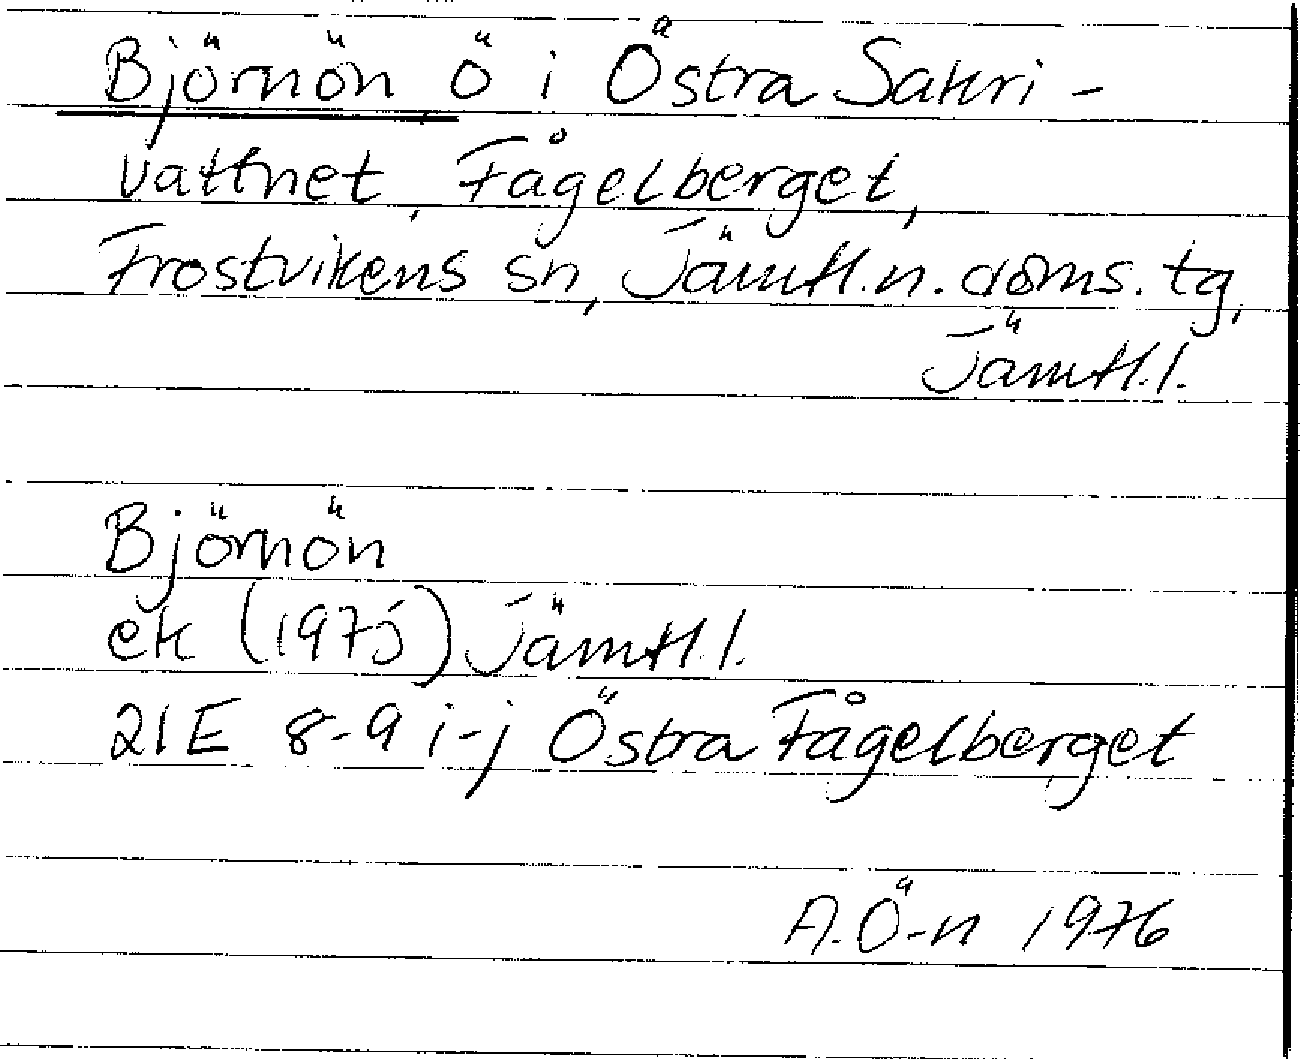 Björnön, ö i Östra Sakri-
vattnet, Fågelberget,
Frostvikens sn, Jämtl.n. doms. tg,
Jämtl.l.
Björnön
ek (1975) Jämtl.l.
21E 8-9 i-j Östra Fågelberget
A.Ö-n 1976